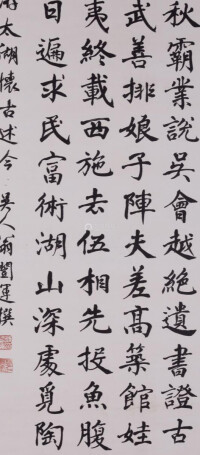 秋霸業說吳會越絕遺書證古
武善排娘子陣夫差高築館娃
夷終載西施去伍相先投魚腹
日遍求民富術湖山深處覓陶
游太湖懷古述今 吳人翁闓運撰